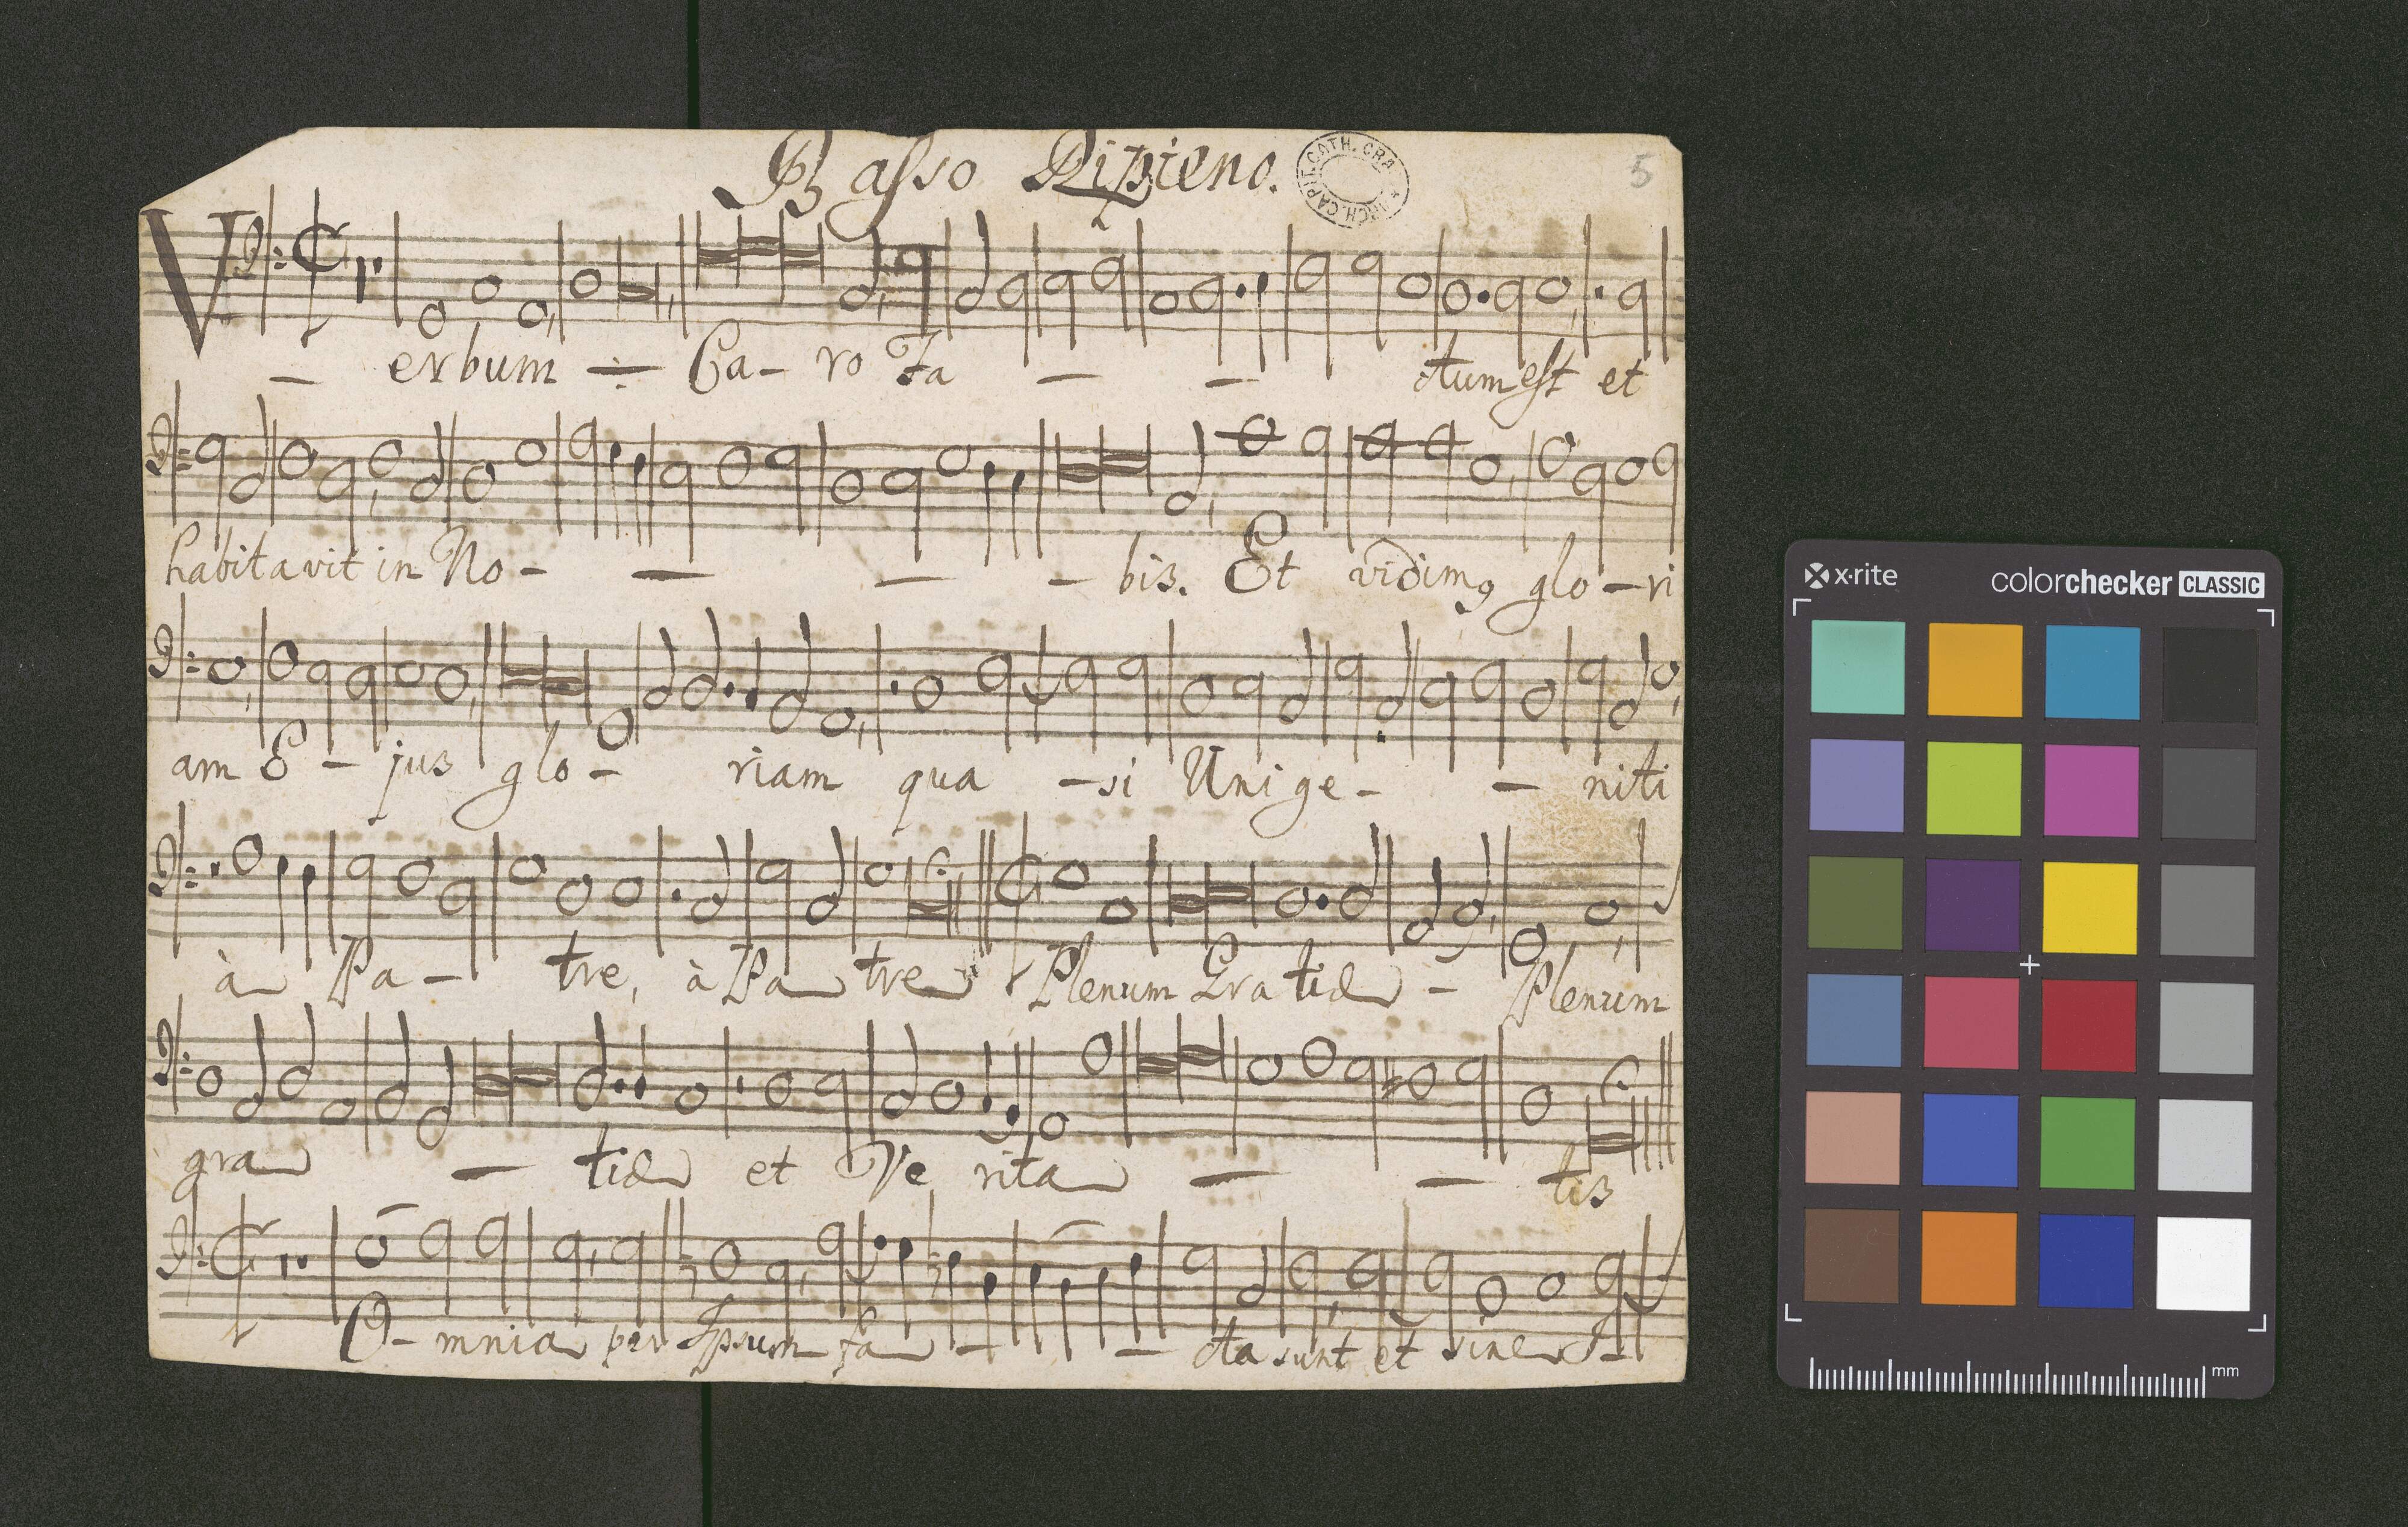 Basso Ripieno.
ARCH. CAPIT. CATH. CRA
5
Verbum Ca- ro Fa - - ctum est et
habitavit in No- - - - bis. Et vidimꝰ glo - ri
am E - jus glo - riam qua - si Unige - - niti
à Pa - tre, à Pa tre Plenum Gra tiæ - Plenum
gra - tiæ et Ve rita - - tis
O- mnia per Ipsum fa - - cta sunt et sine I-
x·rite
colorchecker CLASSIC
mm